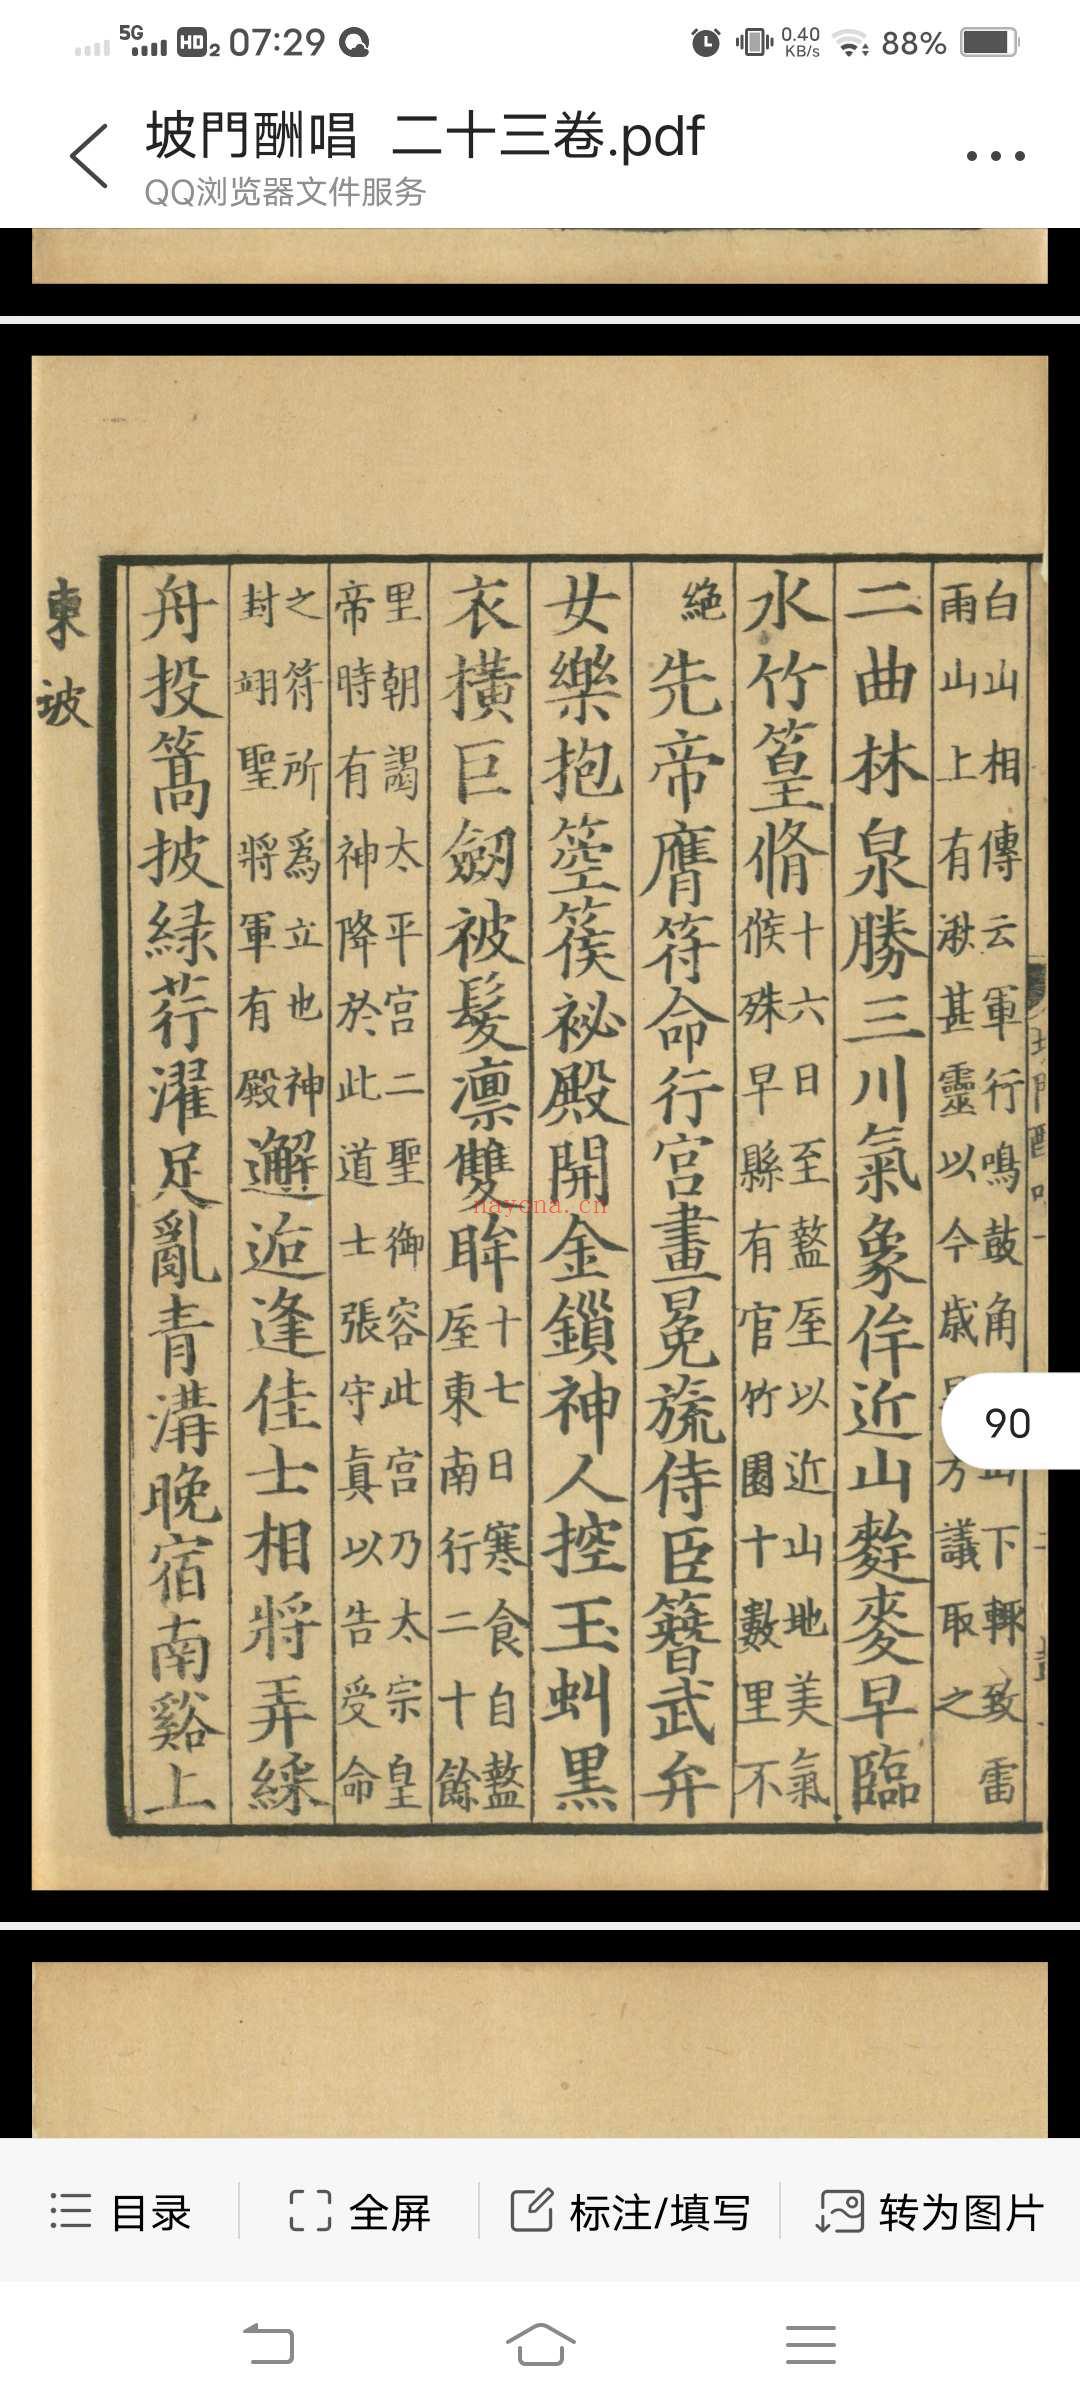 5G HD2 07:29 0.40 KB/s 88%
坡門酬唱 二十三卷.pdf
QQ浏览器文件服务
白山相傳云軍行鳴鼓角山下輙致雷
雨山上有湫甚靈以今歲方議取之
二曲林泉勝三川氣象侔近山麰麥早臨
水竹篁脩
十六日至盩厔以近山地美氣
候殊早縣有官竹園十數里不
絕
先帝膺符命行宮畫冕旒侍臣簪武弁
女樂抱箜篌祕殿開金鎖神人控玉虯黑
衣橫巨劒被髮凛雙眸
十七日寒食自盩
厔東南行二十餘
里朝謁太平宮二聖御容此宮乃太宗皇
帝時有神降於此道士張守眞以告受命
之符所爲立也神
封翊聖將軍有殿
邂逅逢佳士相將弄綵
舟投篙披綠荇濯足亂青溝晚宿南谿上
東坡
nayona.cn
90
目录 全屏 标注/填写 转为图片